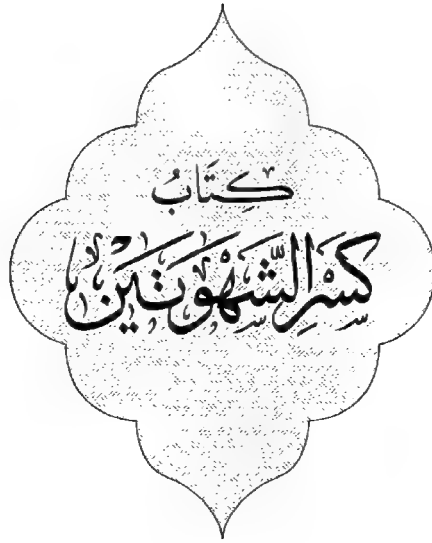 كِتَابُ
كَسْرِ الشَّهْوَتَيْنِ